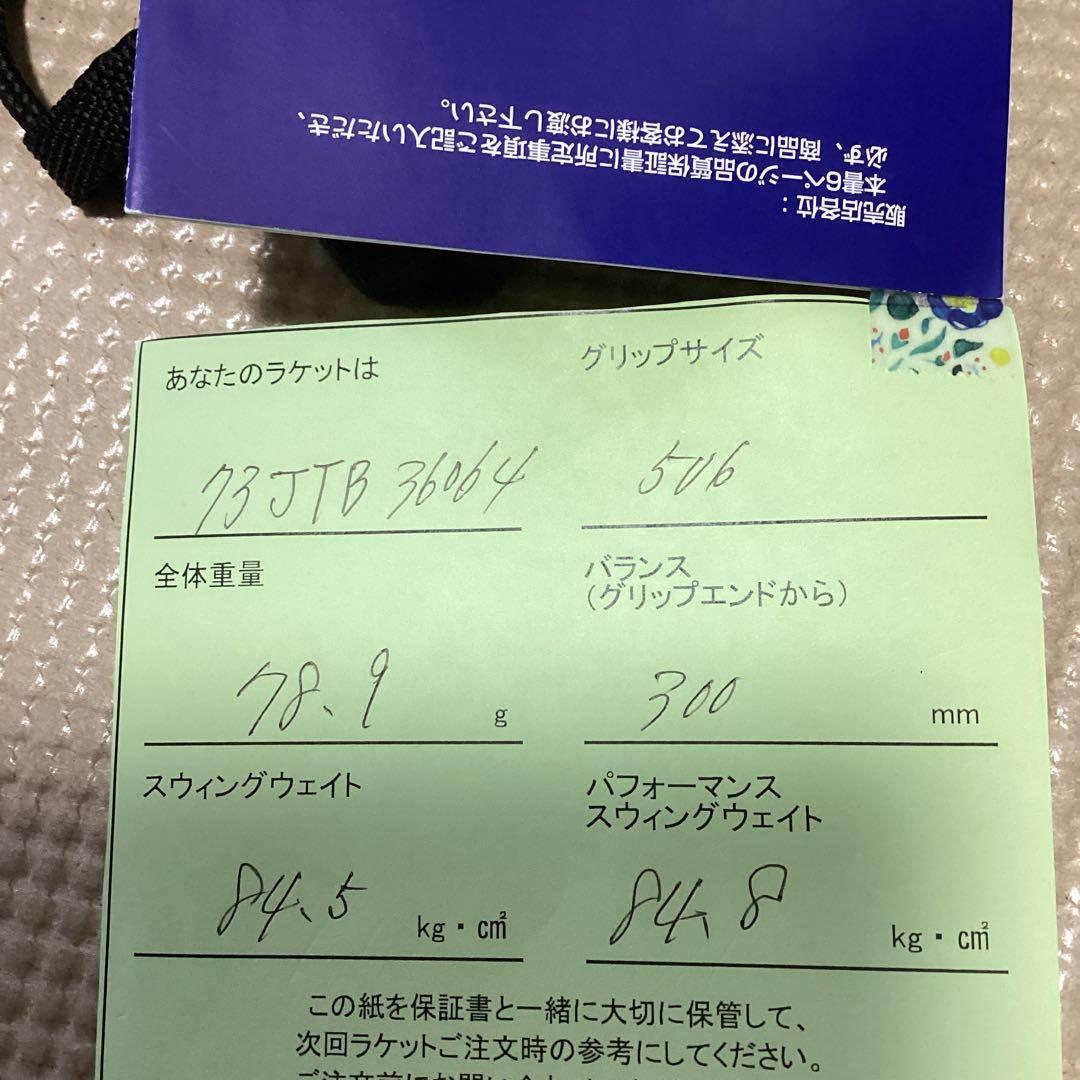 販売店各位：
本書6ページの品質保証書に所定事項をご記入いただき、
必ず、商品に添えてお客様にお渡し下さい。
あなたのラケットは
グリップサイズ
73JTB36064
5U6
全体重量
バランス
（グリップエンドから）
78.9 g
300 mm
スウィングウェイト
パフォーマンス
スウィングウェイト
84.5 kg・c㎡
84.8 kg・c㎡
この紙を保証書と一緒に大切に保管して、
次回ラケットご注文時の参考にしてください。